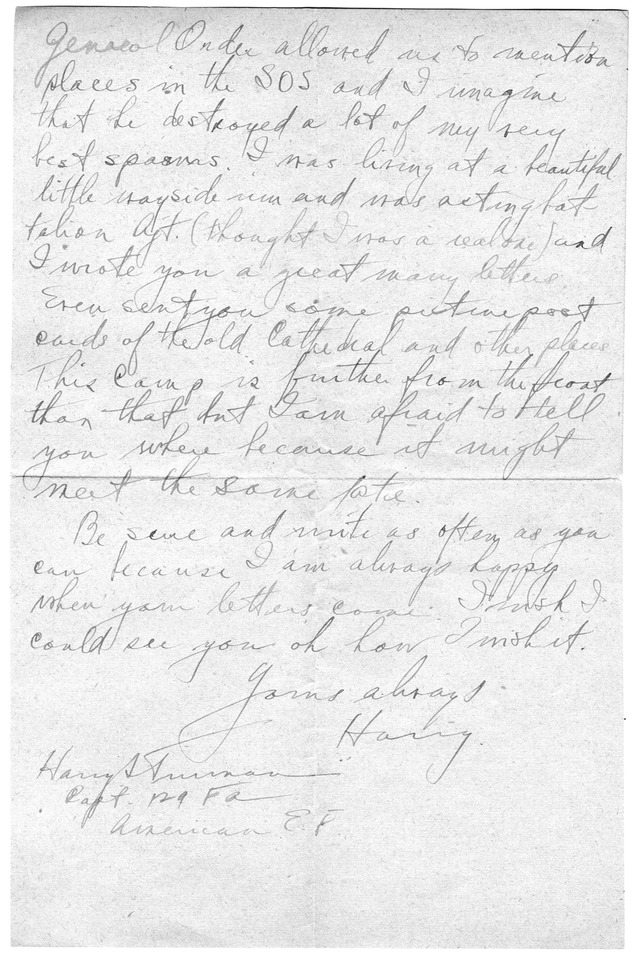 General Order allowed us to mention
places in the SOS and I imagine
that he destroyed a lot of my very
best spasms. I was living at a beautiful
little wayside inn and was acting bat
talion Ajt. (thought I was a real one) and
I wrote you a great many letters.
Even sent you some picture post
cards of the old Cathedral and other places
This Camp is further from the front
than that but I am afraid to tell
you where because it might
meet the same fate.
Be sure and write as often as you
can because I am always happy
when your letters come. I wish I
could see you oh how I wish it.
Yours always
Harry.
Harry S Truman
Capt. 129 FA
American E.F.